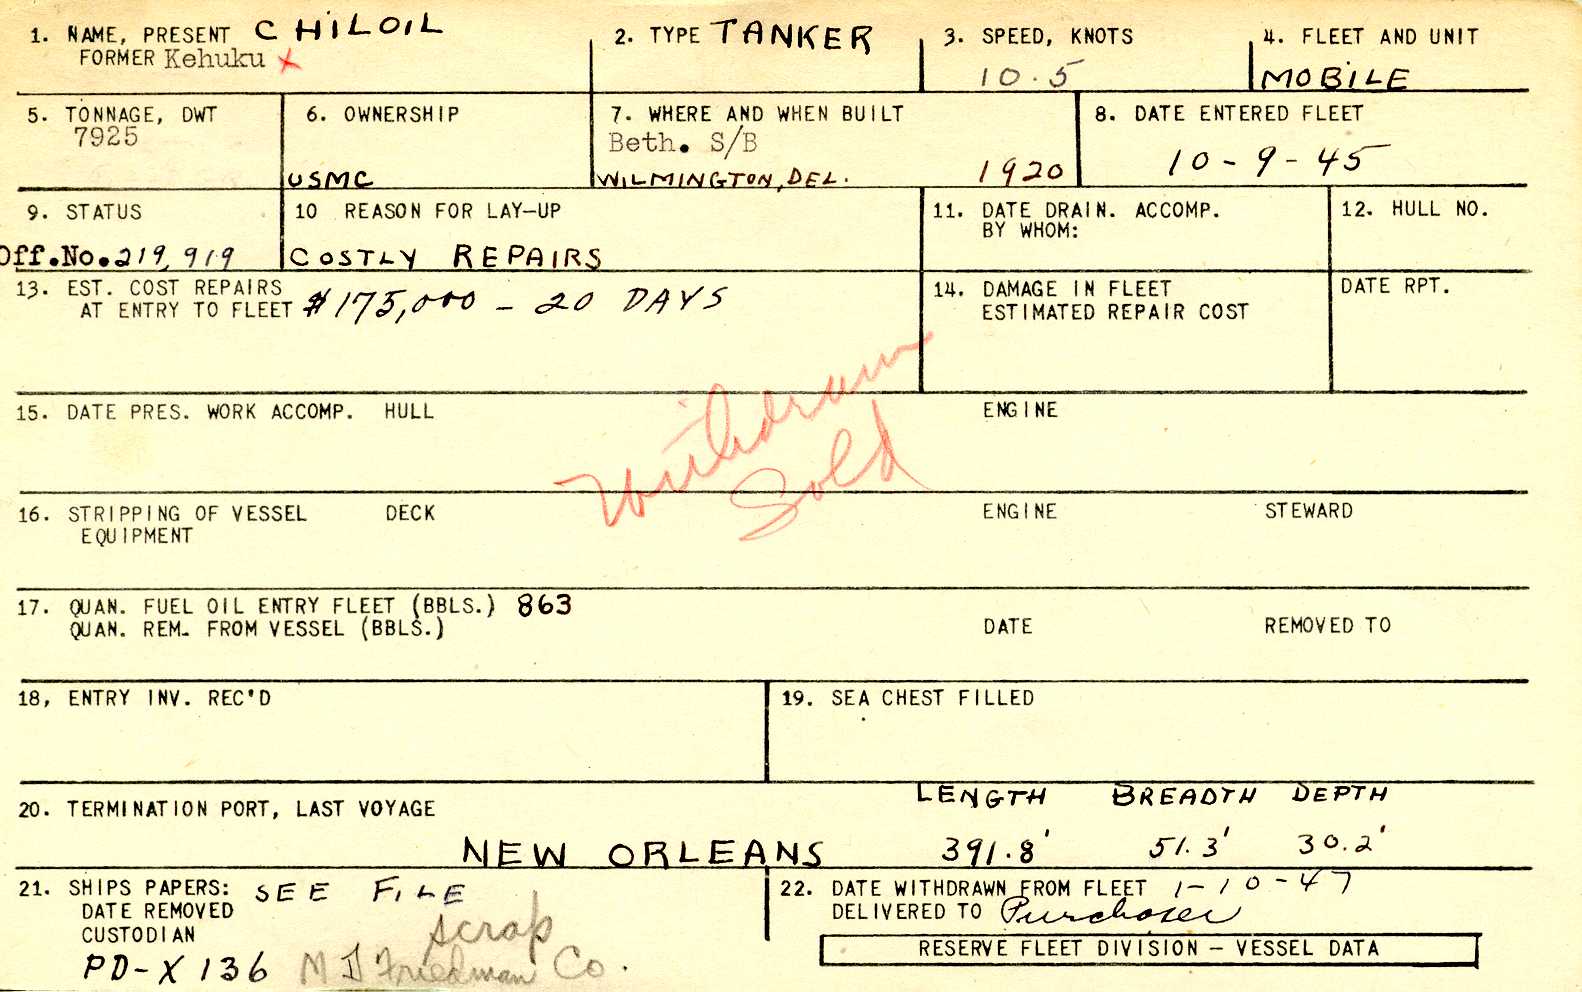 1. NAME, PRESENT CHILOIL
FORMER Kehuku x
2. TYPE TANKER
3. SPEED, KNOTS
10.5
4. FLEET AND UNIT
MOBILE
5. TONNAGE, DWT
7925
6. OWNERSHIP
USMC
7. WHERE AND WHEN BUILT
Beth. S/B
WILMINGTON, DEL. 1920
8. DATE ENTERED FLEET
10-9-45
9. STATUS
Off.No.219,919
10 REASON FOR LAY-UP
COSTLY REPAIRS
11. DATE DRAIN. ACCOMP.
BY WHOM:
12. HULL NO.
13. EST. COST REPAIRS
AT ENTRY TO FLEET $175,000 - 20 DAYS
14. DAMAGE IN FLEET
ESTIMATED REPAIR COST
DATE RPT.
Withdrawn
Sold
15. DATE PRES. WORK ACCOMP. HULL ENGINE
16. STRIPPING OF VESSEL DECK ENGINE STEWARD
EQUIPMENT
17. QUAN. FUEL OIL ENTRY FLEET (BBLS.) 863
QUAN. REM. FROM VESSEL (BBLS.) DATE REMOVED TO
18, ENTRY INV. REC'D
19. SEA CHEST FILLED
20. TERMINATION PORT, LAST VOYAGE
NEW ORLEANS
LENGTH BREADTH DEPTH
391.8' 51.3' 30.2'
21. SHIPS PAPERS: SEE FILE
DATE REMOVED
CUSTODIAN scrap
PD-X 136 M J Friedman Co.
22. DATE WITHDRAWN FROM FLEET 1-10-47
DELIVERED TO Purchaser
RESERVE FLEET DIVISION - VESSEL DATA